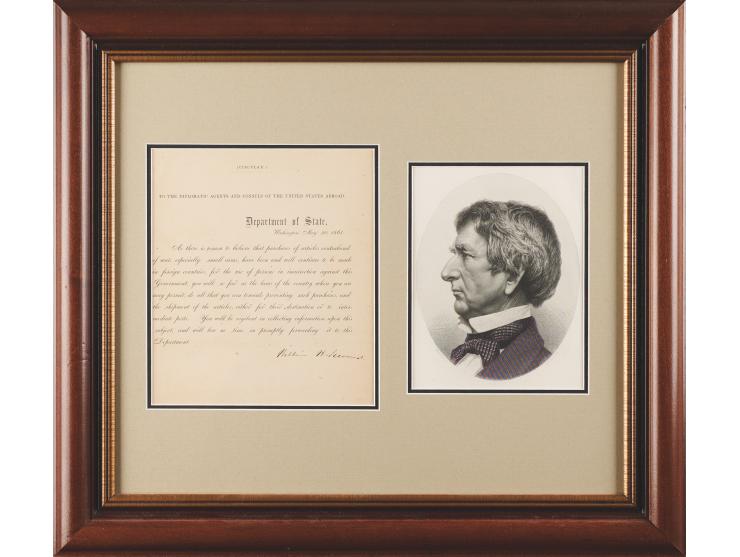 (CIRCULAR.)
TO THE DIPLOMATIC AGENTS AND CONSULS OF THE UNITED STATES ABROAD.
Department of State,
Washington, May 20, 1861.
As there is reason to believe that purchases of articles contraband
of war, especially small arms, have been and will continue to be made
in foreign countries, for the use of persons in insurrection against this
Government, you will, so far as the laws of the country where you are
may permit, do all that you can towards preventing such purchases, and
the shipment of the articles, either for their destination or to inter-
mediate ports. You will be vigilant in collecting information upon this
subject, and will lose no time in promptly forwarding it to this
Department.
William H. Seward